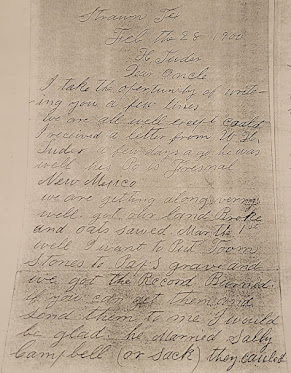 Strawn Tex
Feb the 28 1900
H Tudor
Dear Uncle
I take the opertunity of write-
ing you a few lines
we are all well except
I received a letter from W H
Tudor a few days ago he was
well his P. O. is
New Mexico
we are getting along very
well got our land Broke
and oats sawed Mar the 1st
well I want to Put Toom
Stones to Pap,s grave and
we got the Record Burned
if you can get them and
send them to me I would
be glad. he Married Sally
Campbell (or Sack) they called